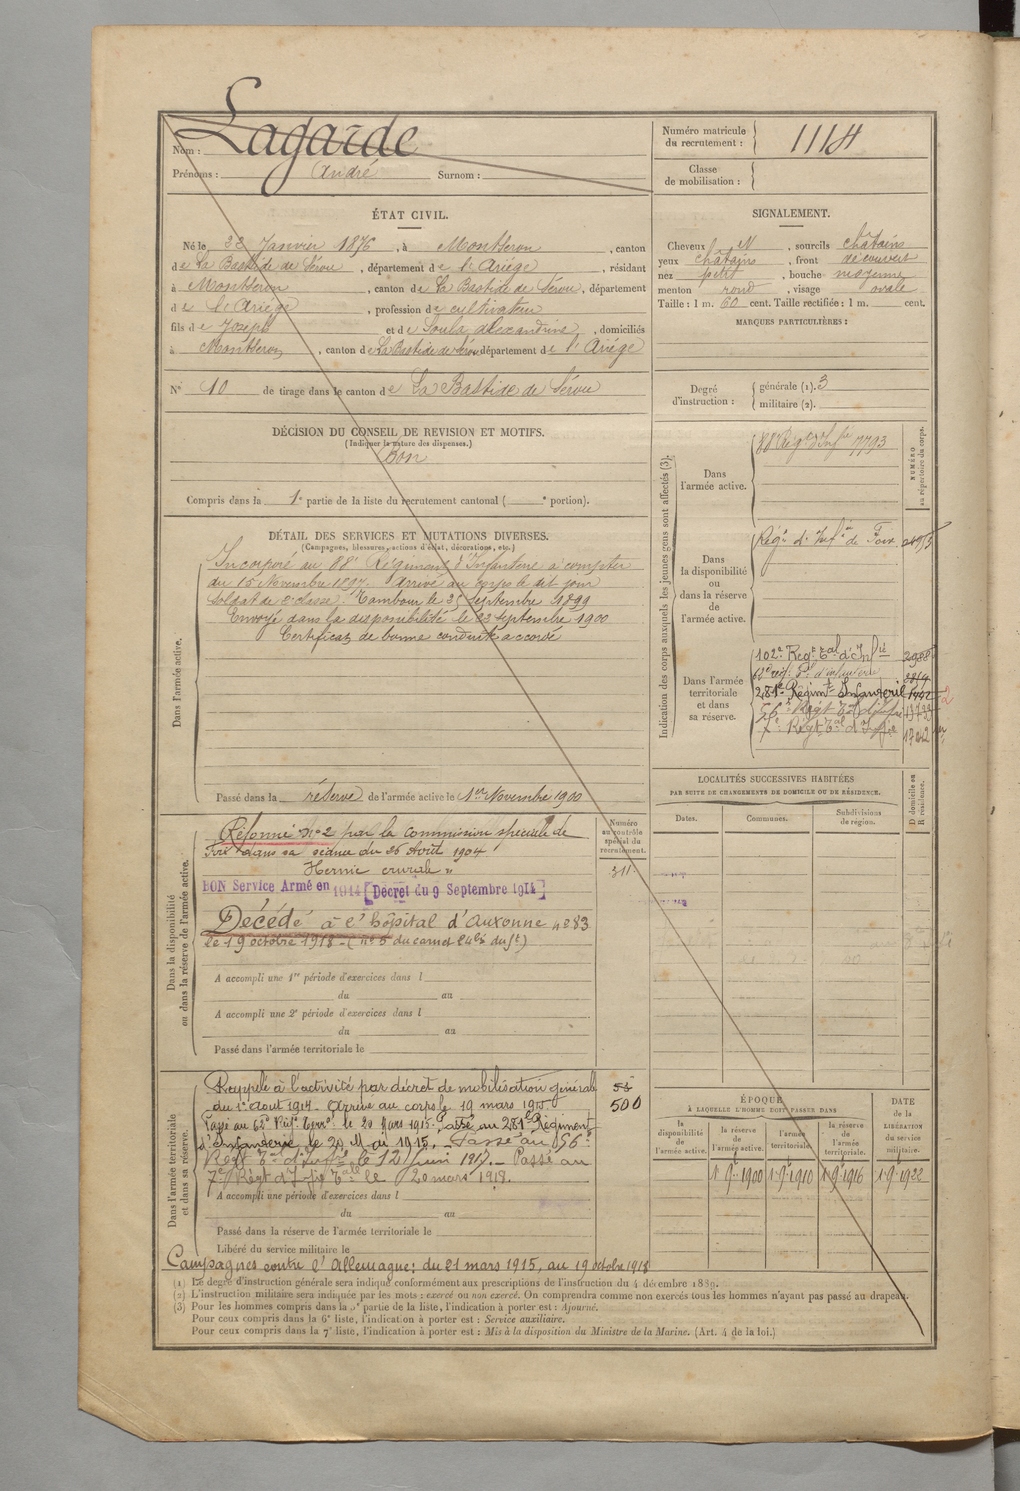 Nom : Lagarde
Prénoms : André Surnom :
Numéro matricule du recrutement : 1114
Classe de mobilisation :
ÉTAT CIVIL.
Né le 22 Janvier 1876, à Montseron, canton
de La Bastide de Sérou, département de l'Ariége, résidant
à Montseron, canton de La Bastide de Sérou, département
de l'Ariége, profession de cultivateur
fils de Joseph et de Soula Alexandrine, domiciliés
à Montseron, canton de La Bastide de Sérou, département de l'Ariége
N° 10 de tirage dans le canton de La Bastide de Sérou
SIGNALEMENT.
Cheveux N, sourcils châtains
yeux châtains, front découvert
nez petit, bouche moyenne
menton rond, visage ovale
Taille : 1 m. 60 cent. Taille rectifiée : 1 m. cent.
MARQUES PARTICULIÈRES :
Degré d'instruction : générale (1). 3
militaire (2).
DÉCISION DU CONSEIL DE REVISION ET MOTIFS.
(Indiquer la nature des dispenses.)
Bon
Compris dans la 1e partie de la liste du recrutement cantonal ( e portion).
DÉTAIL DES SERVICES ET MUTATIONS DIVERSES.
(Campagnes, blessures, actions d'éclat, décorations, etc.)
Dans l'armée active.
Incorporé au 88e Régiment d'Infanterie à compter
du 15 Novembre 1897. Arrivé au corps le dit jour
soldat de 2e classe. Tambour le 25 Septembre 1899
Envoyé dans la disponibilité le 23 septembre 1900
Certificat de bonne conduite accordé
Passé dans la réserve de l'armée active le 1er Novembre 1900
Indication des corps auxquels les jeunes gens sont affectés (3).
NUMÉRO au répertoire du corps.
Dans l'armée active.
88e Régt d'Infie 7793
Dans la disponibilité ou dans la réserve de l'armée active.
Régt d'Infie de Foix
Dans l'armée territoriale et dans sa réserve.
102e Régt Tal d'Infie
62e rég. Tal d'infanterie
281e Régimt Infanterie
56e Régt Tal d'Infie
7e Régt Tal d'Infie
LOCALITÉS SUCCESSIVES HABITÉES
PAR SUITE DE CHANGEMENTS DE DOMICILE OU DE RÉSIDENCE.
Dates.
Communes.
Subdivisions de région.
D domicile ou R résidence.
Dans la disponibilité ou dans la réserve de l'armée active.
Numéro au contrôle spécial du recrutement.
311
Réformé n° 2 par la commission spéciale de
Foix dans sa séance du 26 Août 1904.
Hernie crurale "
BON Service Armé en 1914 [Décret du 9 Septembre 1914]
Décédé à l'hôpital d'Auxonne n° 83
le 19 octobre 1918 - (n° 5 du carnet
A accompli une 1re période d'exercices dans l
du au
A accompli une 2e période d'exercices dans l
du au
Passé dans l'armée territoriale le
Dans l'armée territoriale et dans sa réserve.
500
Rappelé à l'activité par décret de mobilisation générale
du 1er Aout 1914. Arrivé au corps le 19 mars 1915
Passé au 62e Territ le 20 Mars 1915. Passé au 281e Régiment
d'Infanterie le 20 Mai 1915. Passé au 56e
Régt Tal d'Infie le 12 Juin 1917. - Passé au
7e Régt d'Infie Tale le 20 mars 1918.
A accompli une période d'exercices dans l
du au
Passé dans la réserve de l'armée territoriale le
Libéré du service militaire le
Campagnes contre l'Allemagne : du 21 mars 1915, au 19 octobre 1918
ÉPOQUE
À LAQUELLE L'HOMME DOIT PASSER DANS
la disponibilité de l'armée active.
la réserve de l'armée active.
l'armée territoriale.
la réserve de l'armée territoriale.
DATE de la LIBÉRATION du service militaire.
1er 9bre 1900
1er 9bre 1910
1er 9bre 1916
1er 9bre 1922
(1) Le degré d'instruction générale sera indiqué conformément aux prescriptions de l'instruction du 4 décembre 1889.
(2) L'instruction militaire sera indiquée par les mots : exercé ou non exercé. On comprendra comme non exercés tous les hommes n'ayant pas passé au drapeau.
(3) Pour les hommes compris dans la 5e partie de la liste, l'indication à porter est : Ajourné.
Pour ceux compris dans la 6e liste, l'indication à porter est : Service auxiliaire.
Pour ceux compris dans la 7e liste, l'indication à porter est : Mis à la disposition du Ministre de la Marine. (Art. 4 de la loi.)